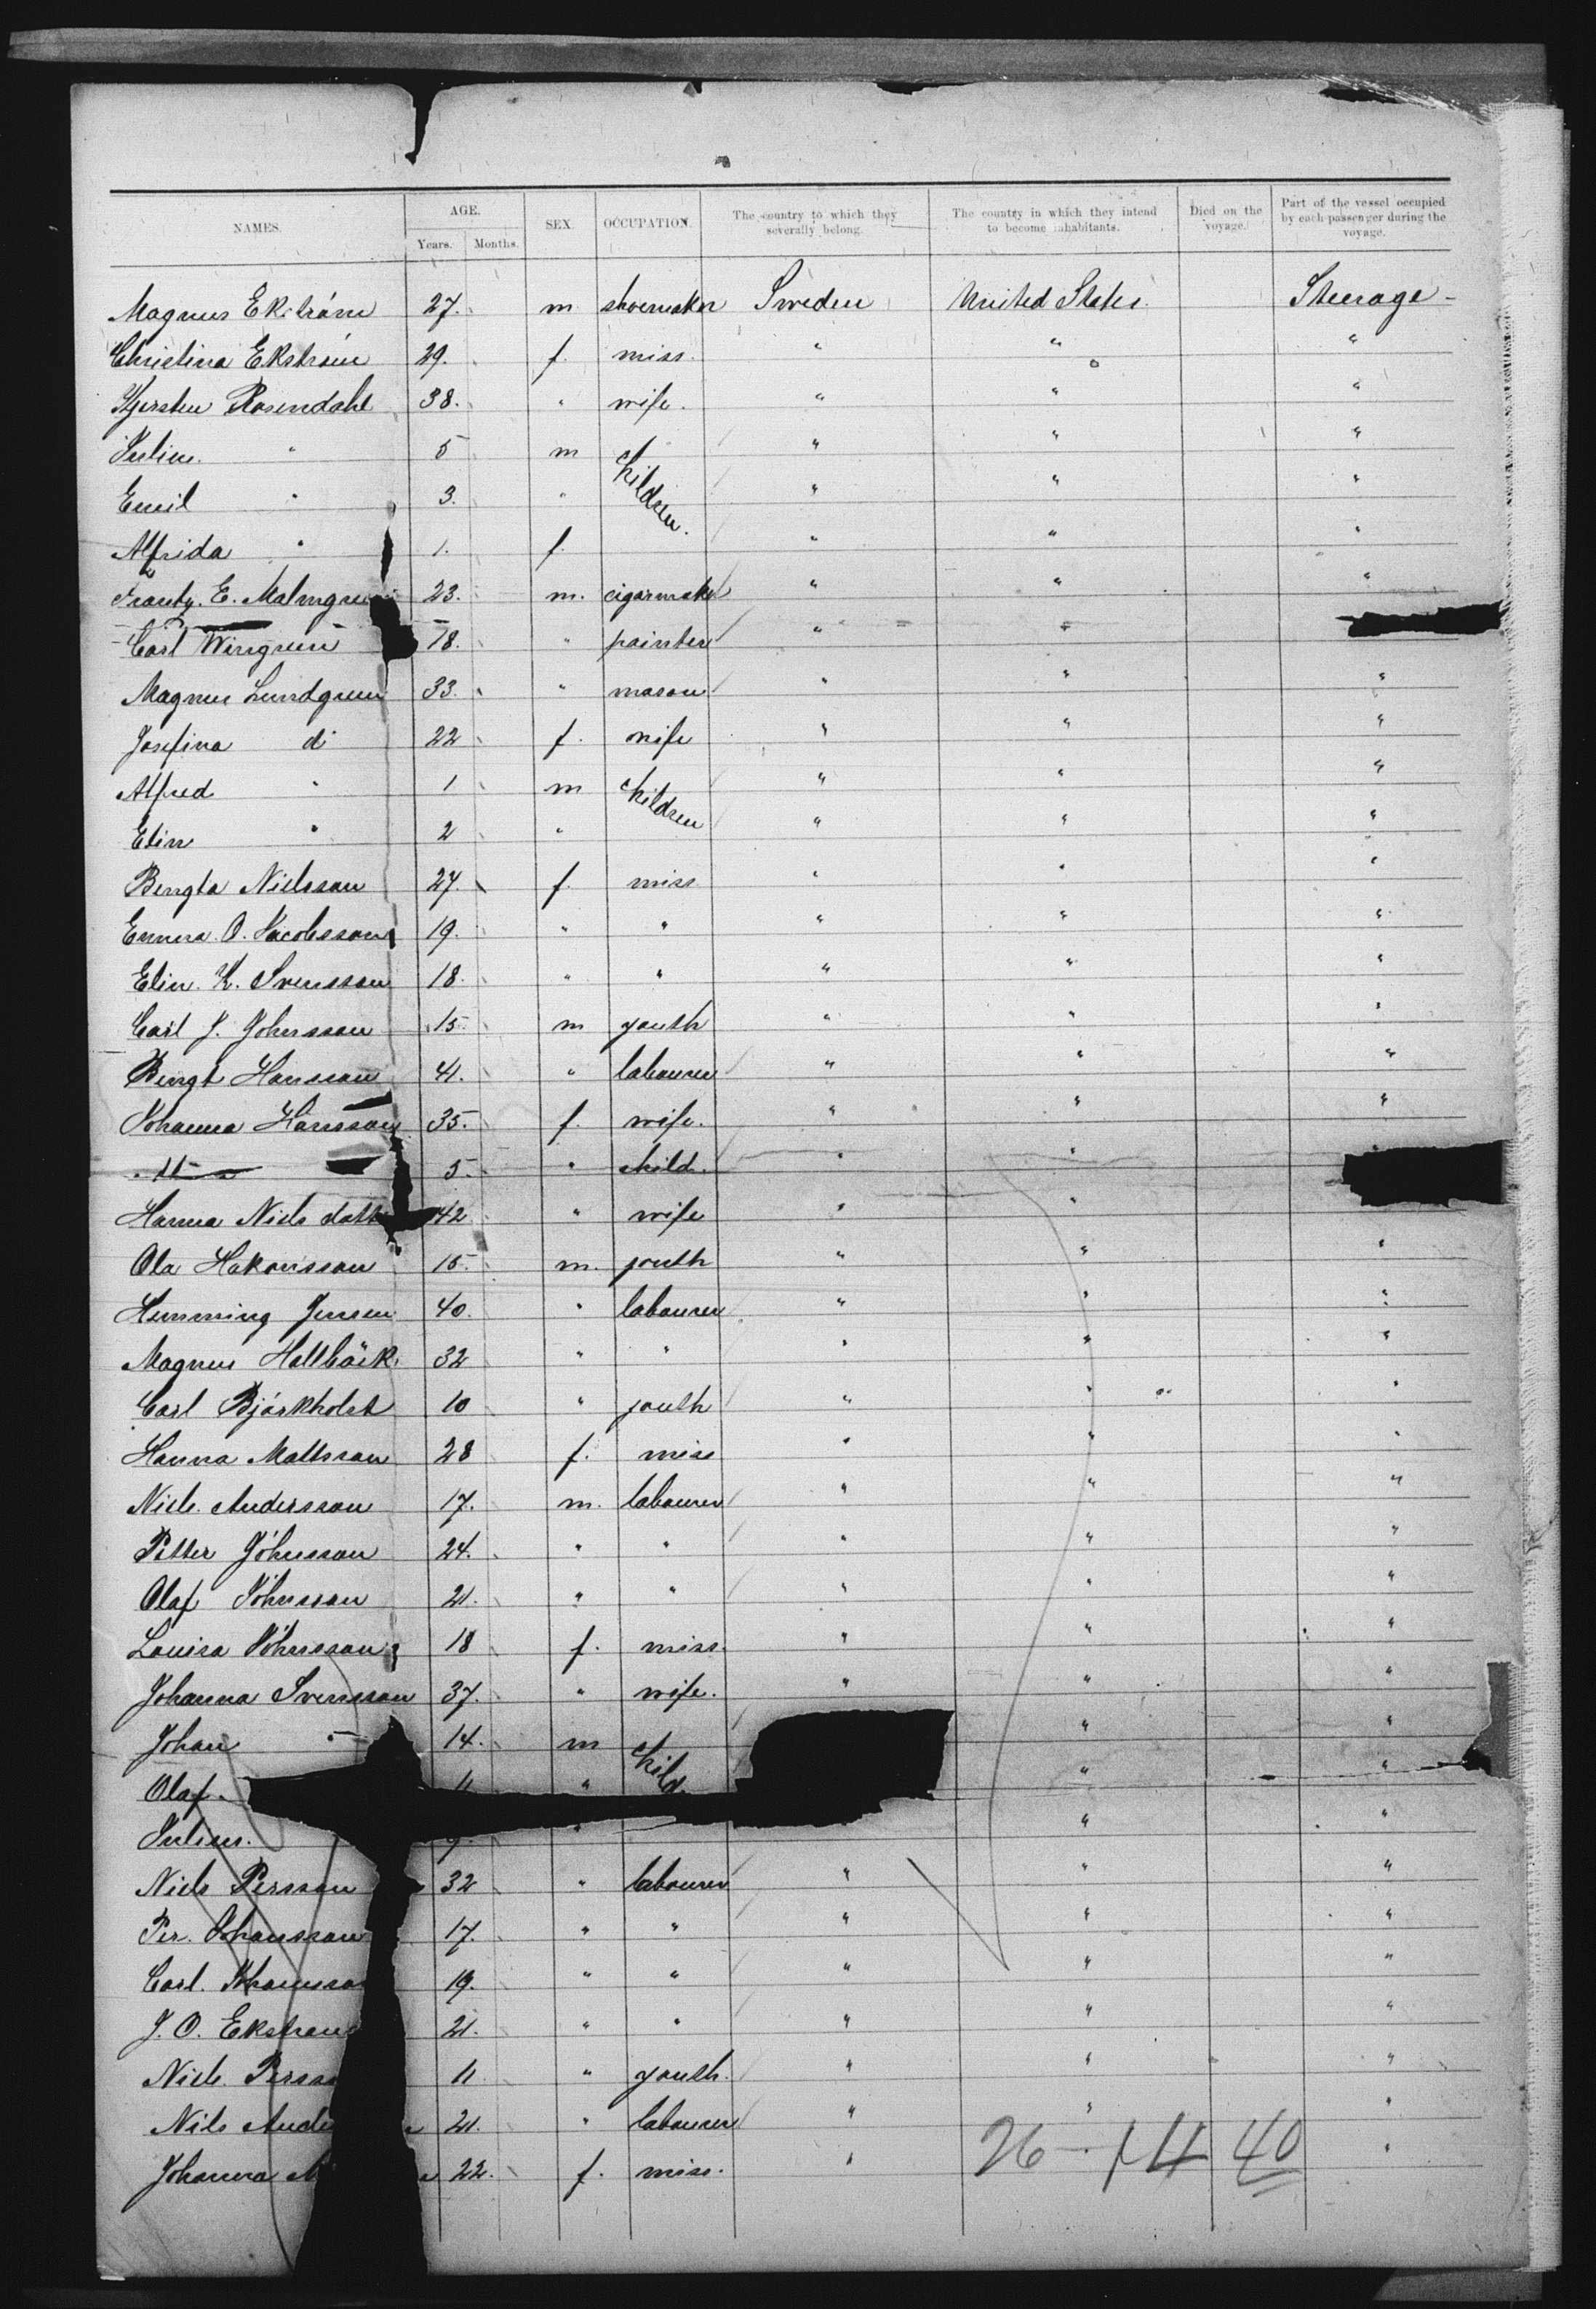 NAMES. AGE. SEX. OCCUPATION. The country to which they severally belong. The country in which they intend to become inhabitants. Died on the voyage. Part of the vessel occupied by each passenger during the voyage.
Years. Months.
Magnus Ekström 27. m shoemaker Sweden United States. Steerage -
Christina Ekström 29. f. miss. " " "
Kjersten Rosendahl 38. " wife. " " "
Julius " 5 m Children. " " "
Emil " 3. " " " "
Alfrida " 1. f. " " "
Frantz. E. Malmgren 23. m. cigarmaker " " "
Carl Wingren 18. " painter " "
Magnus Lundgren 33. " mason " " "
Josefina do 22 f. wife " " "
Alfred " 1 m Children " " "
Elin " 2 " " " "
Bengta Nielsson 27. f. miss " " "
Emma O. Jacobsson 19. " " " " "
Elin. K. Svensson 18. " " " " "
Carl J. Johnsson 15. m youth " " "
Bengt Hansson 41. " labourer " " "
Johanna Hansson 35. f. wife. " " "
5. " child. " "
Hanna Niels 42 " wife " "
Ola Hakansson 15. m. youth " " "
Hemming Jensen 40. " labourer " " "
Magnus Hallbäck. 32 " " " " "
Carl Björkholst 10 " youth " " "
Hanna Mattsson 28 f. miss " " "
Niels. Andersson 17. m. labourer " " "
Petter Johnsson 24. " " " " "
Olaf Johnsson 21. " " " " "
Louisa Johnsson 18 f. miss. " " "
Johanna Svensson 37. " wife. " " "
Johan " 14. m Child. " "
Olaf. " " "
Julius. " "
Niels Persson 32 " labourer " " "
Per. Johansson 17. " " " " "
Carl. 19. " " " " "
J. O. 21. " " " " "
Niels. 11 " youth. " " "
Nils 21. " labourer " " "
Johanna 22. f. miss. " "
26 - 14 40